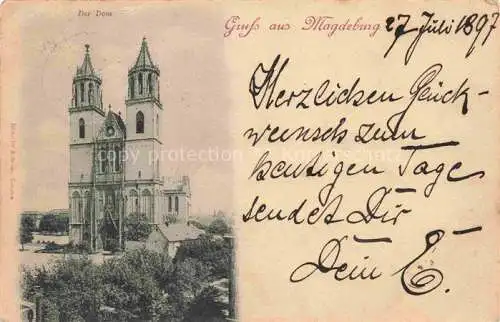 Der Dom
Gruß aus Magdeburg
27 Juli 1897
Herzlichen Glück-
wunsch zum
heutigen Tage
sendet Dir
Dein E.
copyright